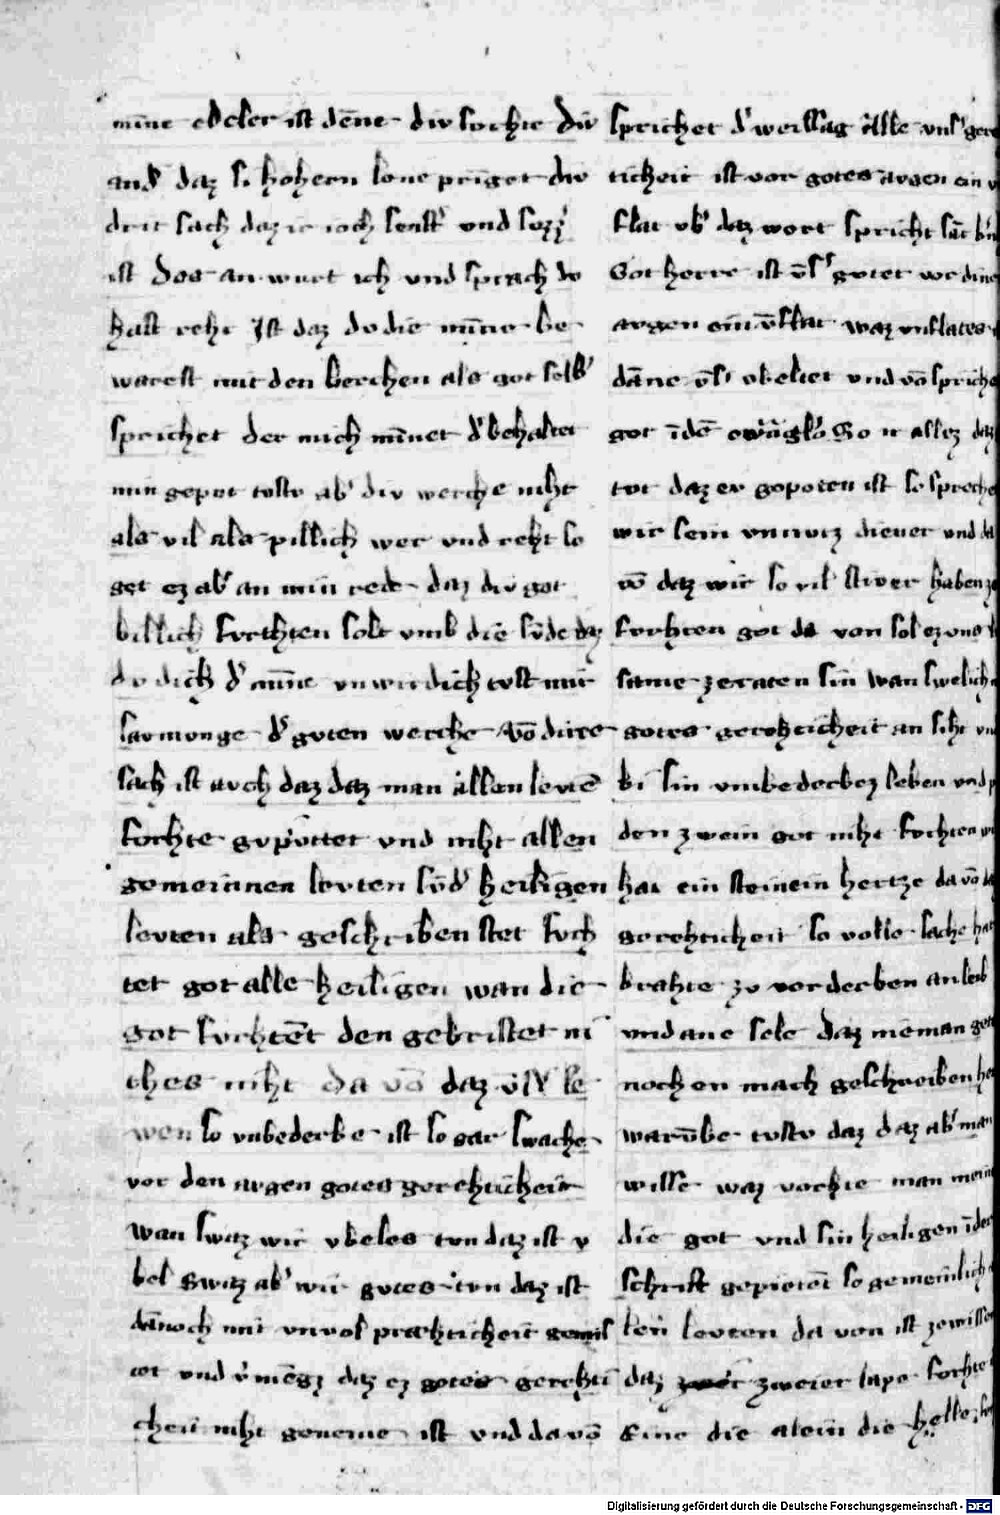 mīne edeler ist dēne div forhte Div
and' daz si hohern lone priget div
drit sach daz ir ioch senft' und suzz'
ist Des an wurt ich und sprach dv
hast reht Ist daz dv die mīne be
warest mit den werchen als got selb'
sprichet der mich mīnet d' behaltet
min gepot tvstv ab' div werche niht
als vil als pillich wer und reht so
get ez ab' an min rede daz dv got
billich fvrchten solt vmb die sv̄de daz
dv dich d' mīne vnwirdich tvst mit
savmunge d' guten werche Vō dirre
sach ist avch daz daz man allen levtē
forhte gepivttet und niht allen
gemeinnen levten svnd' heiligen
levten als geschriben stet fvrch
tet got alle heiligen wan die
got fvrhtēt den gebristet ni
thes niht da vō daz vns' le
wen so vnbederbe ist so gar swache
vor den avgen gotes gerehticheit
wan swaz wir vbeles tvn daz ist v
bel Swaz ab' wir gvtes tvn daz ist
dānoch mit vnvolprahticheit gemis
cet und v'mēgz daz ez gotes gerehti
cheit niht geneme ist und da vō
sprichet d' weissag Alle vns' gere
ticheit ist vor gotes avgen ein v
flat vb' daz wort spricht sāt b'n
Got herre ist v̄s' gutet vor dine
avgen ein v̄flat waz vnflates
dāne v̄s' vbeltet und vō spriche
got ī dē ewāgl'o So ir allez daz
tvt daz ev gepoten ist so spreche
wir sein vnnvtz diener und da
vō daz wir so vil stiver haben ze
forhten got da von sol ez uns
same zeraten sin wan swelich
gotes gerehticheit an siht vn
bi sin vmbederbez leben und
den zwein got niht fvrhten
hat ein steinein hertze da vō
gerehticheit so volle sache hat
brahte zv verderben an leib
und ane sele daz nieman ge
noch en mach geschreiben
warv̄be tvstv daz daz ab' man
wisse waz vorhte man mein
die got und sin heiligen ī der
schrift gepietēt so gemeinlich
len levten da von ist ze wissen
daz zweier lape forhte
Eine die alein die helle

Digitalisierung gefördert durch die Deutsche Forschungsgemeinschaft - DFG